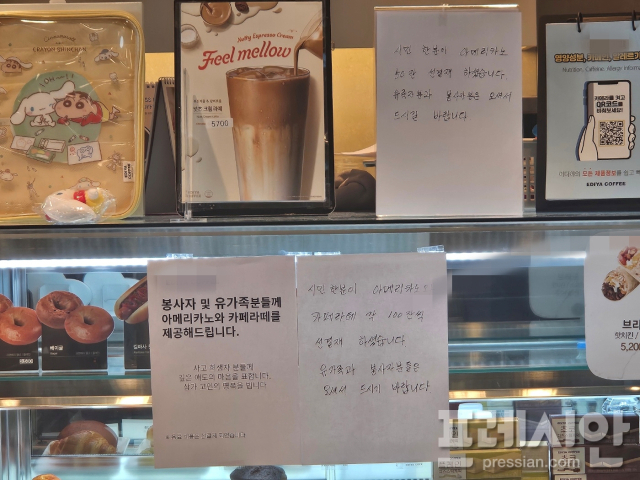 Nutty Espresso Cream
Feel mellow
5700
시민 한분이 아메리카노
50만 선결제 하셨습니다.
유족분들과 봉사자분은 오셔서
드시길 바랍니다.
영양성분, 카페인, 알레르기
Nutrition, Caffeine, Allergy Information
카메라를 켜고
QR코드를
비춰보세요!
EDIYA COFFEE
봉사자 및 유가족분들께
아메리카노와 카페라떼를
제공해드립니다.
사고 희생자 분들께
깊은 애도의 마음을 표합니다.
삼가 고인의 명복을 빕니다
시민 한분이 아메리카노
카페라떼 약 100만원
선결제 하셨습니다
유가족과 봉사자분들은
오셔서 드시기 바랍니다
베이글
브리
핫치킨
5,200
프레시안
pressian.com